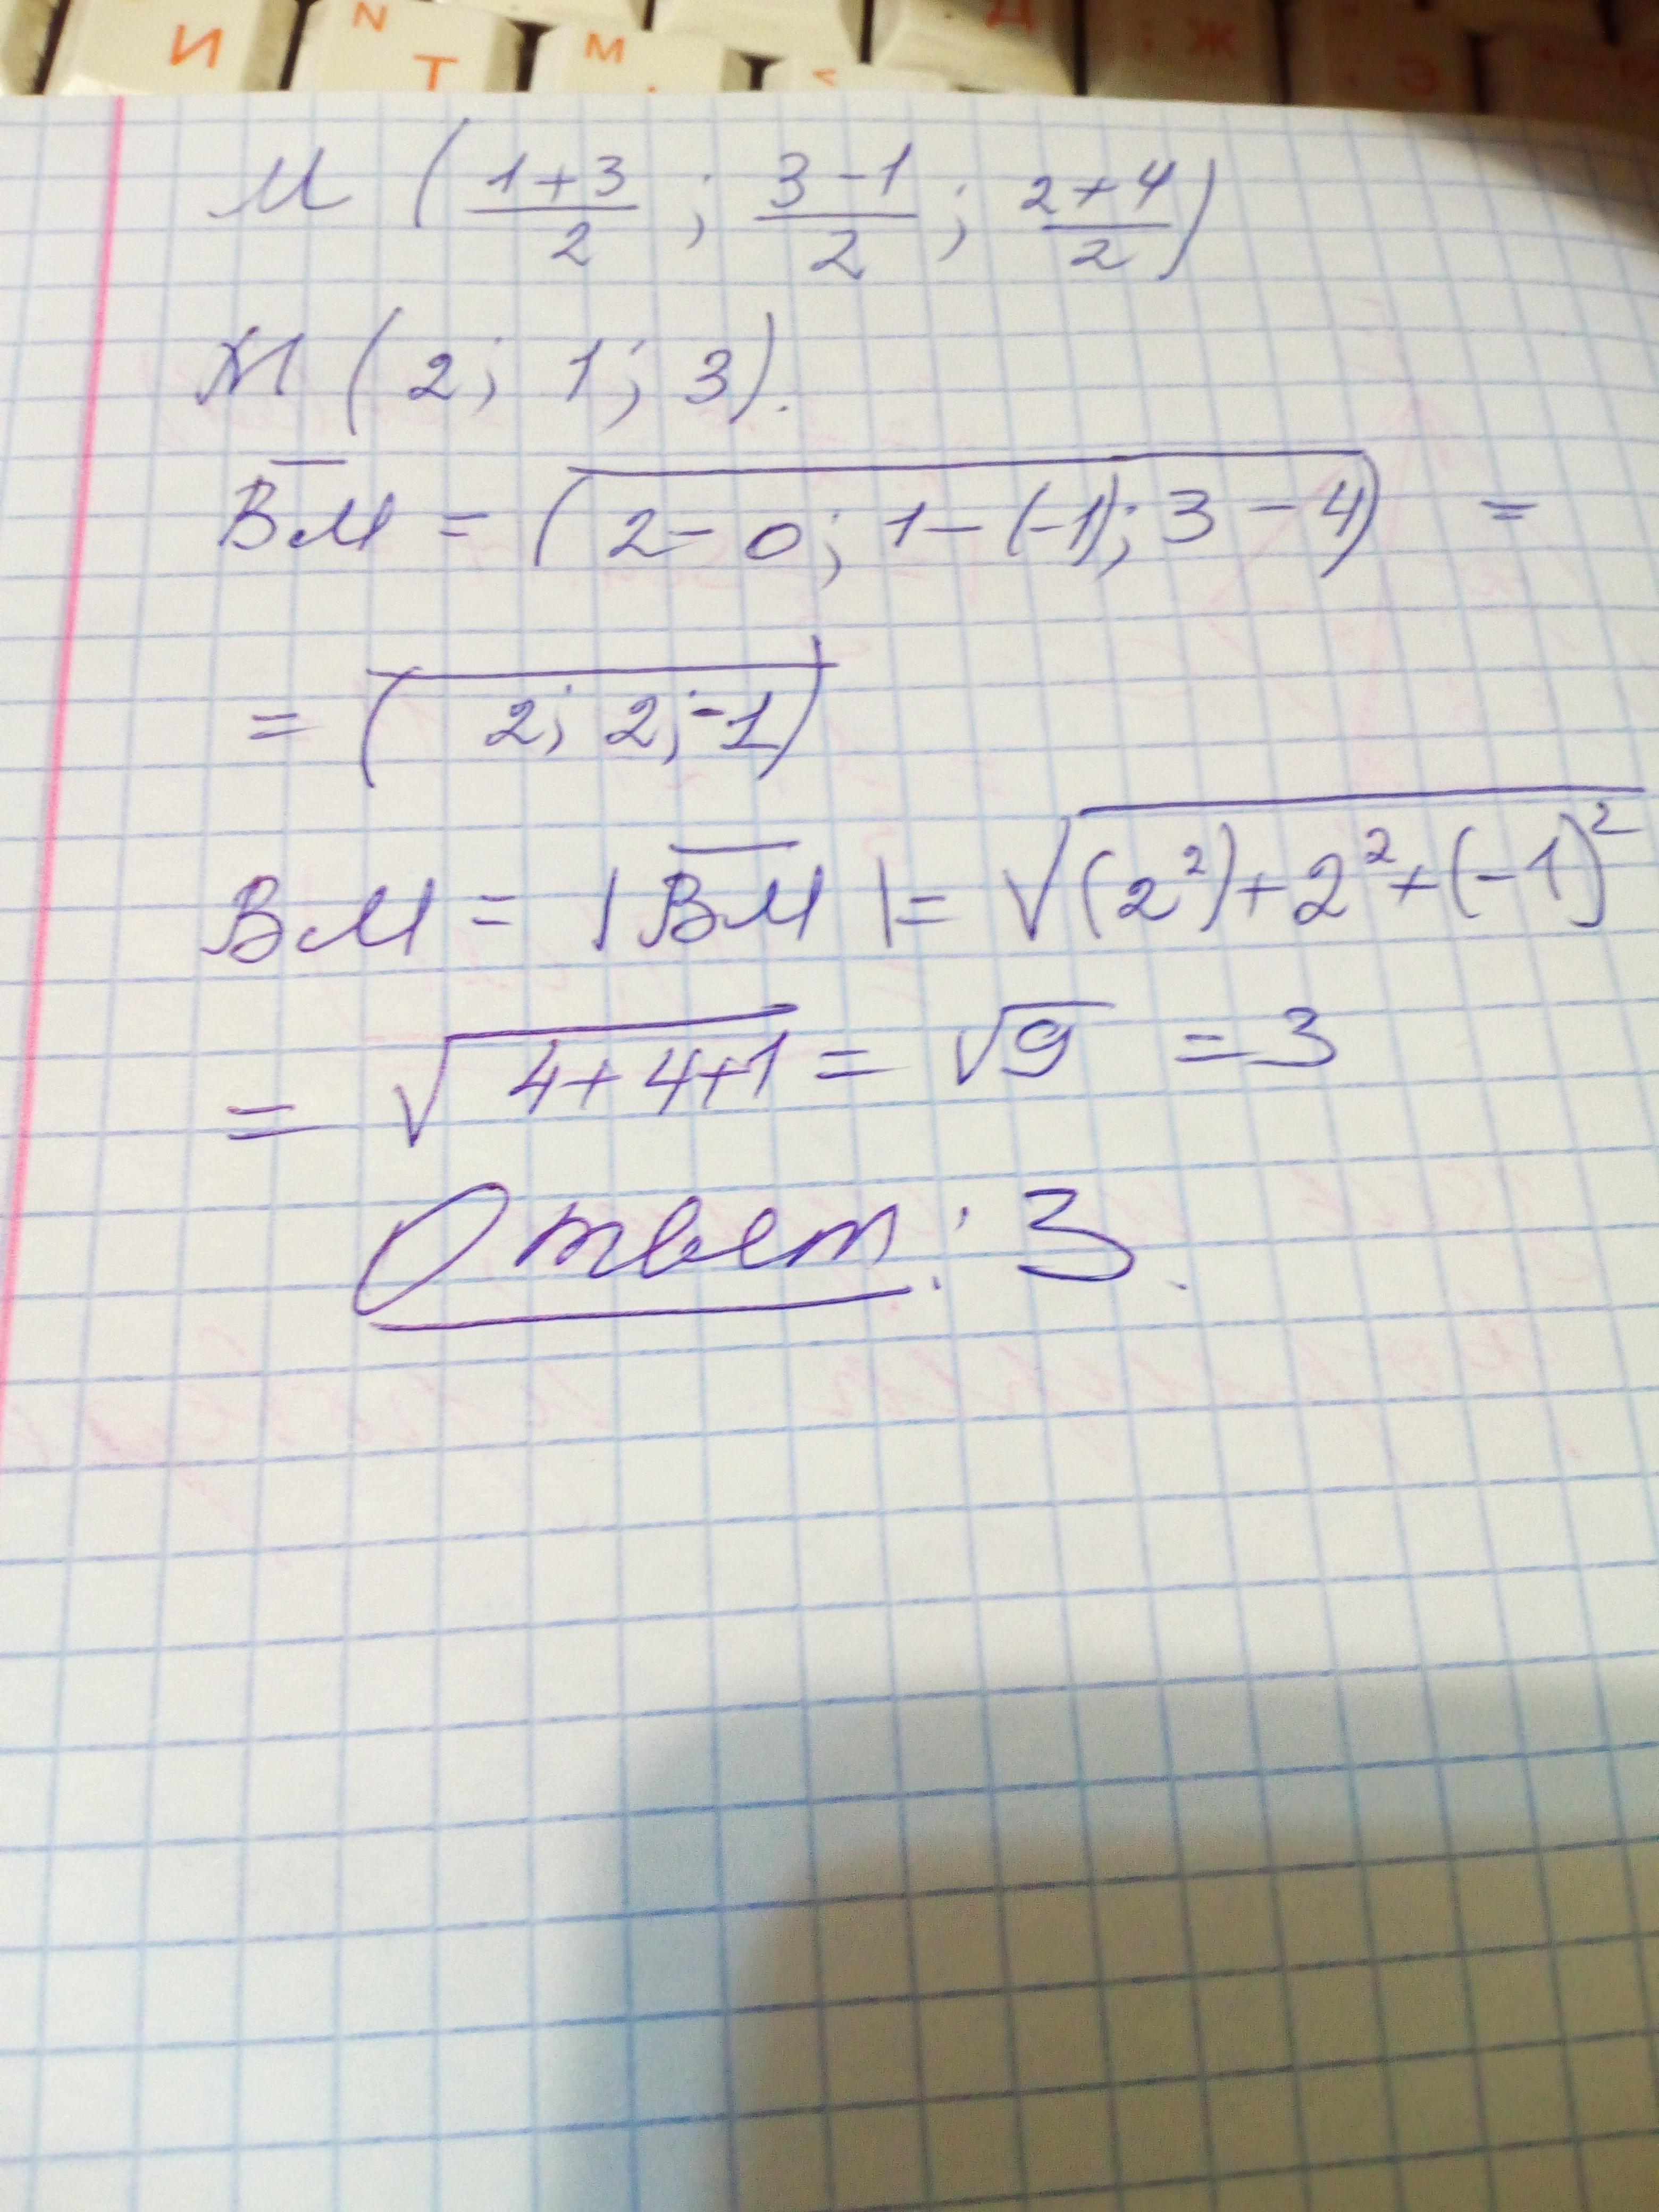 И N Т М . < Д ; Ж Э
M ( (1+3)/2 ; (3-1)/2 ; (2+4)/2 )
M ( 2; 1; 3).
B̅M̅ = (2-0; 1-(-1); 3-4) =
= ( 2; 2; -1)
BM = |B̅M̅| = √((2²)+2²+(-1)²
= √(4+4+1) = √9 = 3
Ответ: 3.